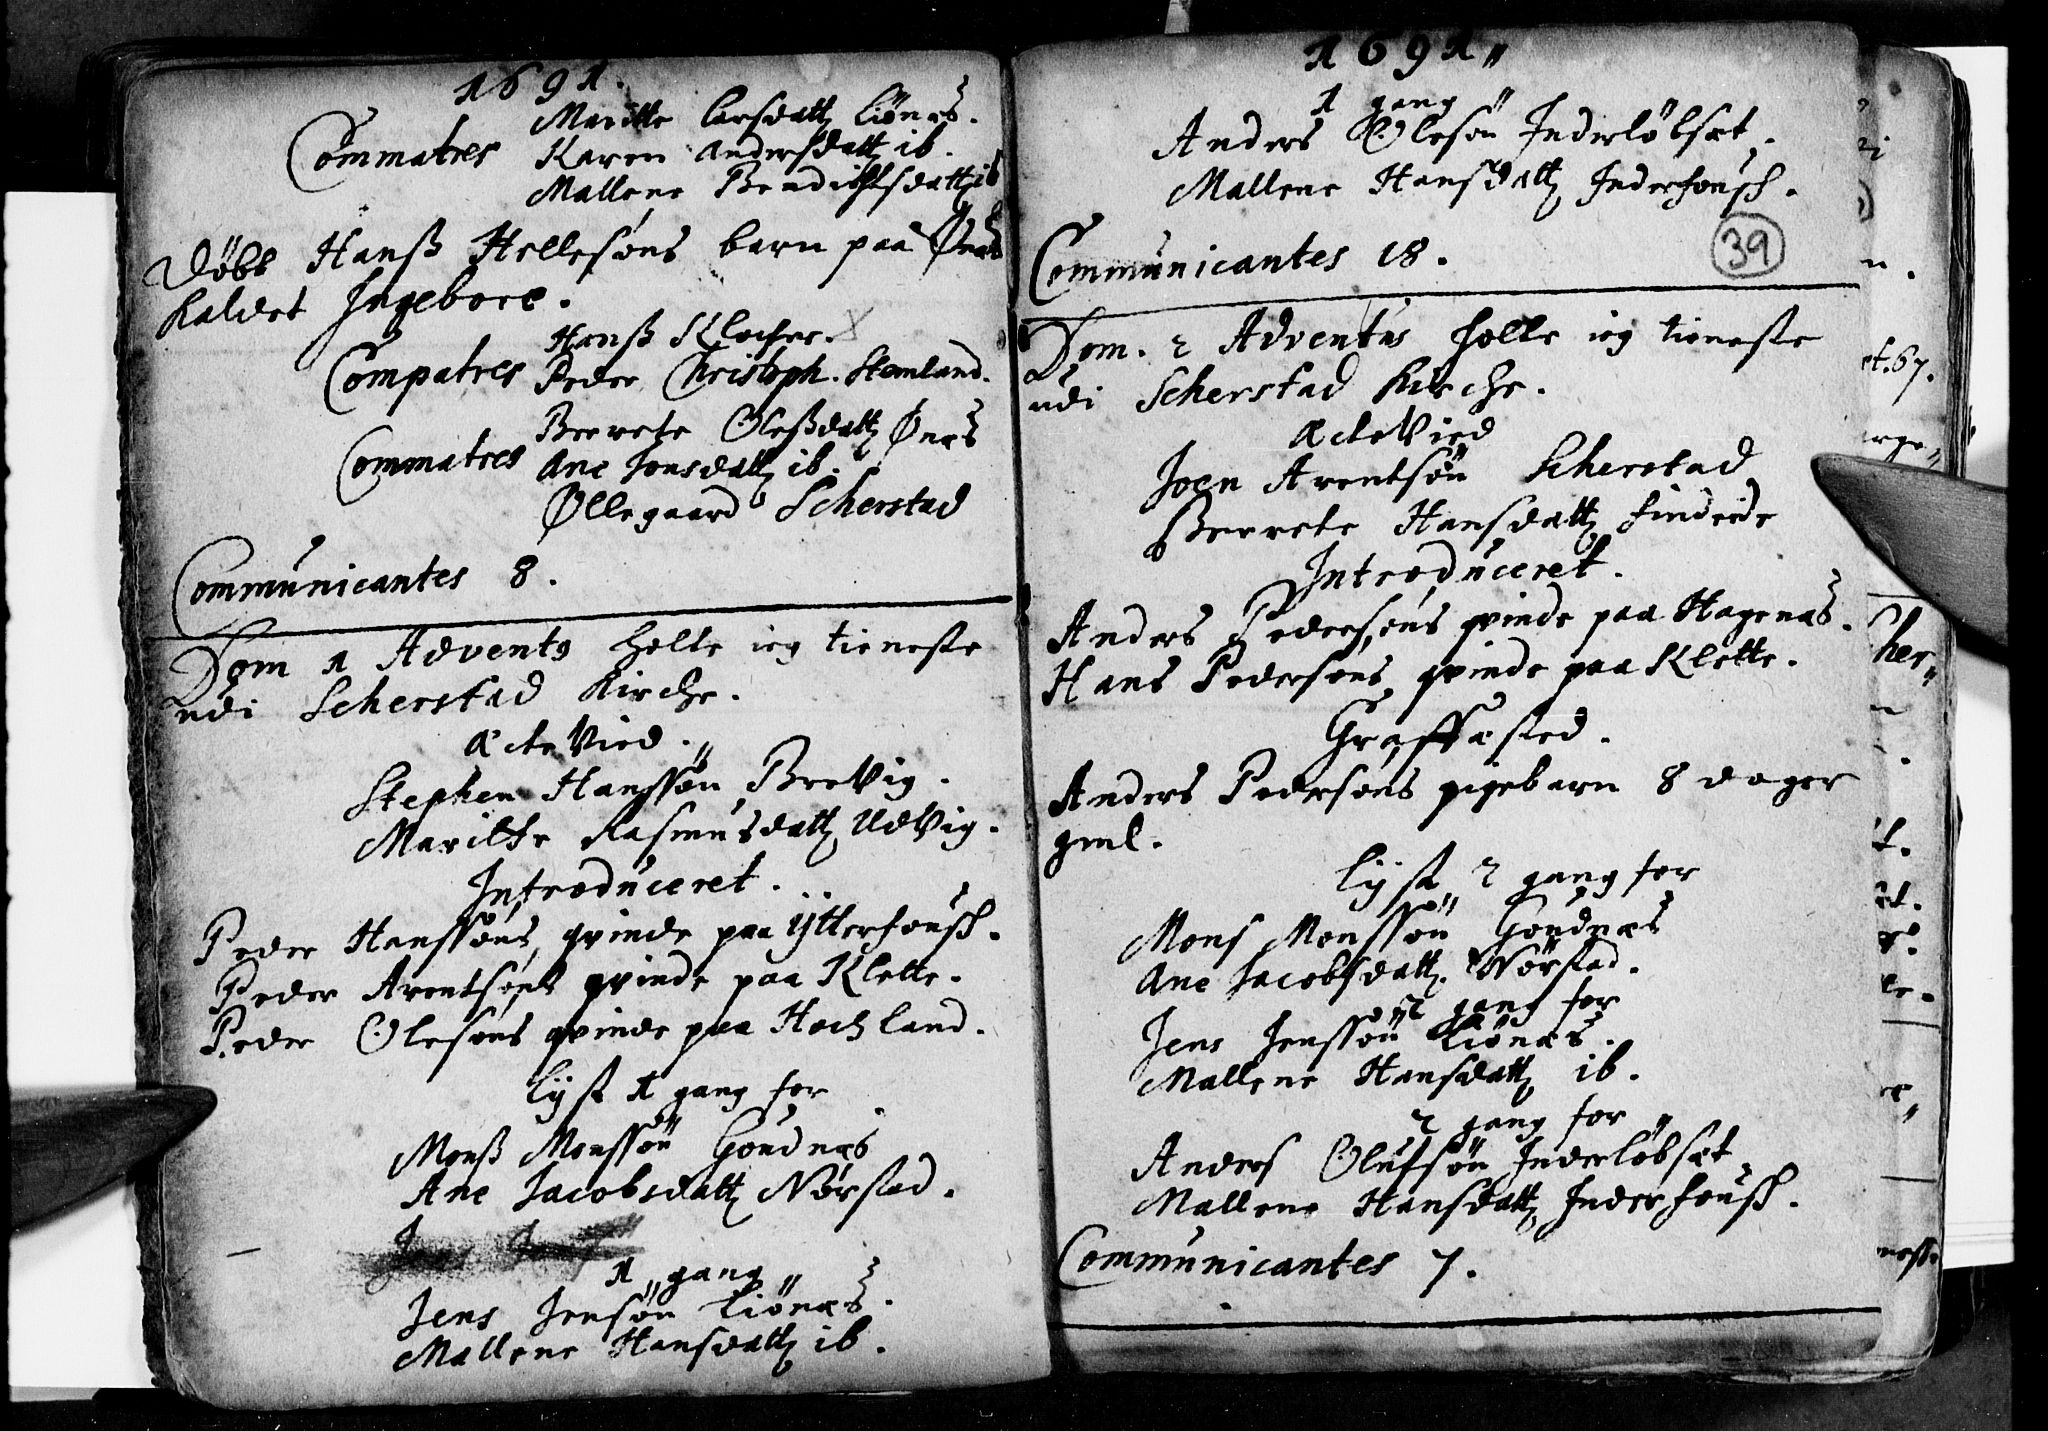 1691.
Maritte Larsdatt Liönæs.
Commatres Karen Andersdatt ib.
Mallene Bendichtsdatt ib
Döbt Hanß Hellesöns barn paa Ønæs
kaldet Ingeborr.
Hanß Klocher.
Compatres Peder Christoph. Stemland.
Berrete Oleßdatt Ønæs
Commatres Ane Jonsdatt ib.
Øllegaard Scherstad
Communicantes 8.
Dom 1 Advents holte ieg tieneste
udi Scherstad Kirche.
Ecte Vied.
Stephen Hanssön BreVig.
Maritte Rasmusdatt UdVig.
Introduceret.
Peder Hanssöns qvinde paa ÿtterhoush.
Peder Arentsöns qvinde paa Klette.
Peder Olesöns qvinde paa Hochland.
Lÿst 1 gang for
Monß Monssön Goudnæs
Ane Jacobsdatt Nörstad.
1 gang
Jens Jensön Liönæs.
Mallene Hansdatt ib.
1691
1 gang
Anders Olesön Inderlöbsæt.
Mallene Hansdatt Inderhoush.
39
Communicantes 18.
Dom. 2 Adventus holte ieg tieneste
udi Scherstad Kirche.
Ecte Vied
Joen Arentsön Scherstad
Berrete Hansdatt Findeide
Introduceret.
Anders Pedersöns qvinde paa Hagenæs.
Hans Pedersöns qvinde paa Klette.
Graffæsted.
Anders Pedersöns pigebarn 8 dager
gml.
Lÿst 2 gang for
Mons Monssön Goudnæs
Ane Jacobsdatt. Nörstad.
2 gang for
Jens Jenssön Liönæs.
Mallene Hansdatt ib.
2 gang for
Anders Olufsön Inderlöbsæt
Mallene Hansdatt Inderhoush.
Communicantes 7.